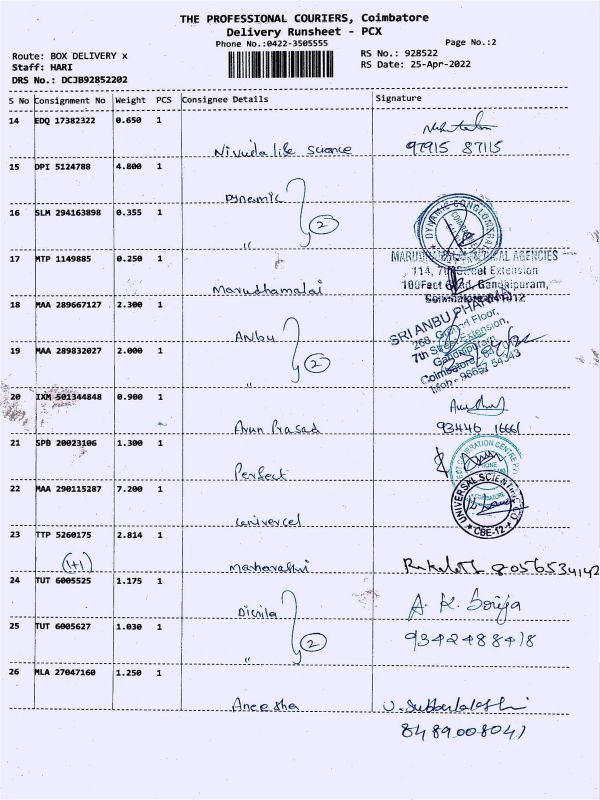 THE PROFESSIONAL COURIERS, Coimbatore
Delivery Runsheet - PCX
Phone No.:0422-3505555
Page No.:2
Route: BOX DELIVERY x
RS No.: 928522
Staff: HARI
RS Date: 25-Apr-2022
DRS No.: DCJB92852202
S No Consignment No Weight PCS Consignee Details Signature
14 EDQ 17382322 0.650 1
Nivuda life science 97915 87115
15 DPI 5124788 4.800 1
Dynamic
2
16 SLM 294163898 0.355 1
"
DYNAMIC CONGLOMERATE
17 MTP 1149885 0.250 1
Marudhamalai
AGENCIES
114, 7th Street Extension
100Feet Road, Gandhipuram,
Coimbatore-641012
18 MAA 289667127 2.300 1
Anbu
2
SRI ANBU PHARMA
268, Ground Floor,
7th Street Extension,
Gandhipuram
Coimbatore
Mob - 96657 54343
19 MAA 289832027 2.000 1
"
20 IXM 501344848 0.900 1
Arun Prasad 93446 16661
21 SPB 20023106 1.300 1
Perfect
CALIBRATION CENTRE
22 MAA 290115287 7.200 1
Univercel
UNIVERSAL SCIENTIFIC
CBE-12
23 TTP 5260175 2.814 1
(1+1)
8056534142
24 TUT 6005525 1.175 1
2
A. K.
25 TUT 6005627 1.030 1
"
9342488418
26 MLA 27047160 1.250 1
Aneesha
8489008041